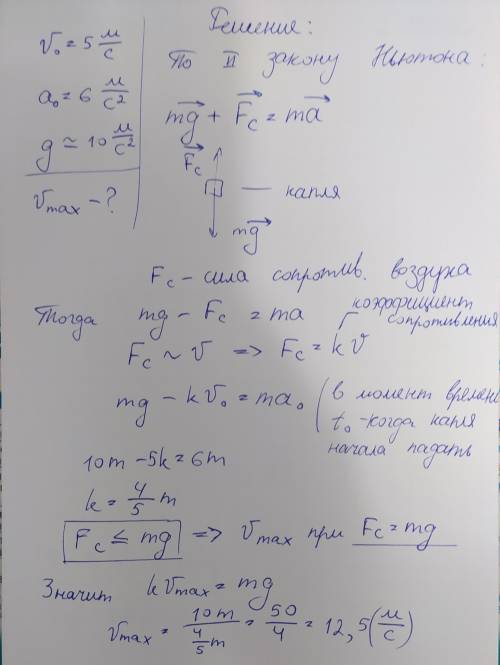 v₀ = 5 м/с
a₀ = 6 м/с²
g ≃ 10 м/с²
v max - ?
Решения:
По II закону Ньютона:
m→g + F→c = m→a
F→c
— капля
m→g
Fc - сила сопротив. воздуха
Тогда mg - Fc = ma
коэффициент сопротивления
Fc ~ v => Fc = k v
mg - k v₀ = ma₀
(в момент времени
t₀ - когда капля
начала падать
10m - 5k = 6m
k = 4/5 m
Fc ≤ mg => v max при Fc = mg
Значит k v max = mg
v max = 10m / (4/5 m) = 50/4 = 12,5 (м/с)